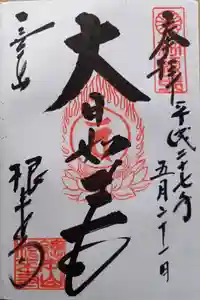 奉拝
平成二十七年
五月二十一日
大日如来
一乗山
根来寺